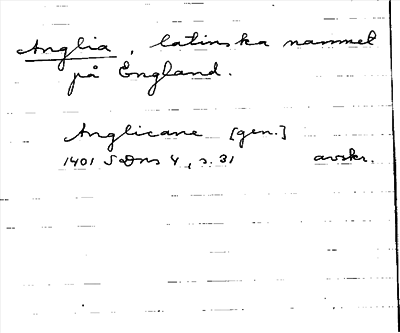 Anglia, latinska namnet
på England.
Anglicane [gen.]
1401 SDns 4, s. 31 avskr.